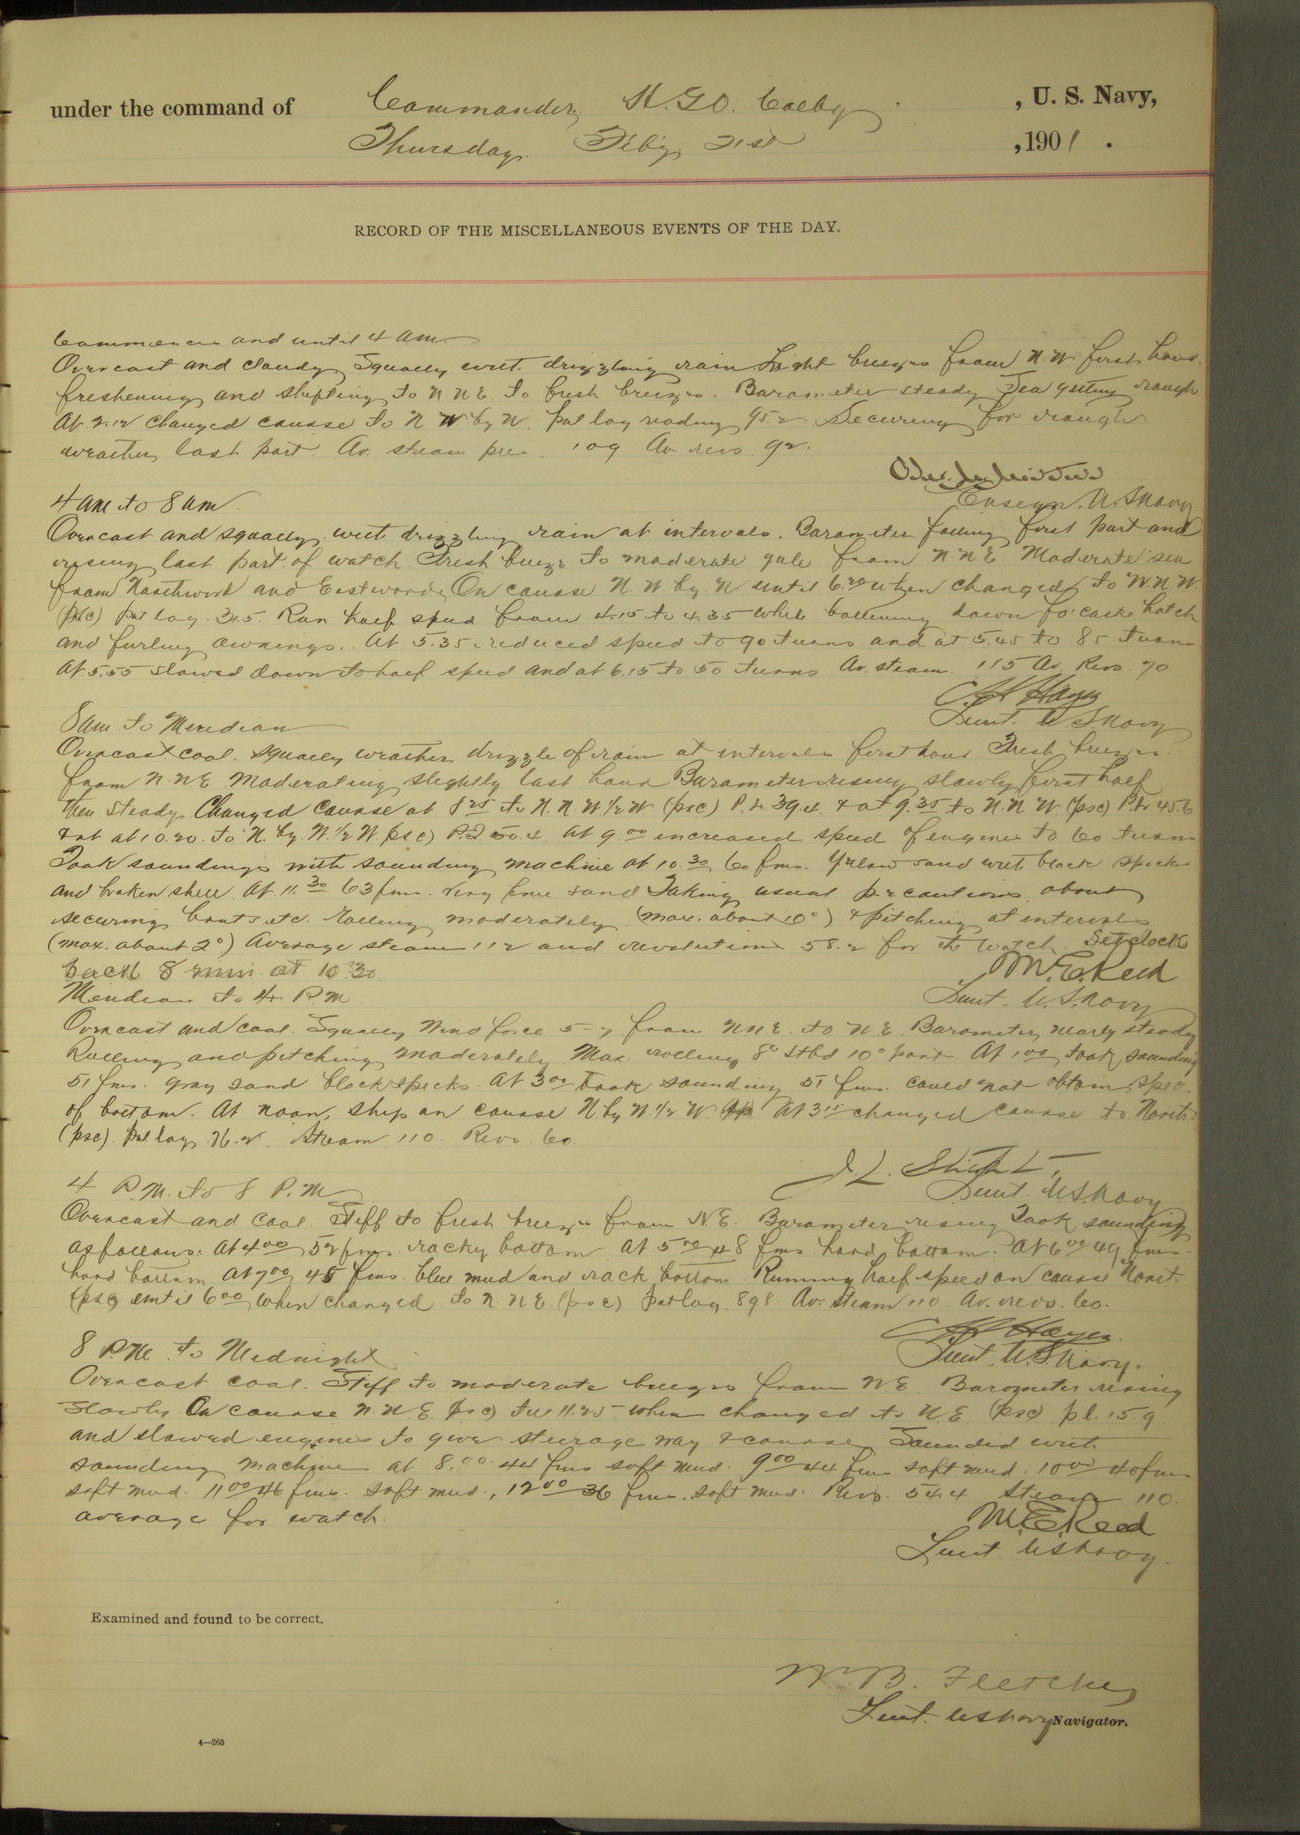 under the command of Commander H. G. O. Colby, U. S. Navy,
Thursday Feby 21st, 1901.
RECORD OF THE MISCELLANEOUS EVENTS OF THE DAY.
Commences and until 4 am
Overcast and cloudy Squally with drizzling rain Light breezes from N.W. first hour
freshening and shifting to N N E to fresh breezes. Barometer steady Sea getting rough
At 2.12 changed course to N W by N. pat log reading 95.2 Securing for rough
weather last part. Av. steam pres. 109 Av. revs 92.
Ensign. U.S. Navy
4 am to 8 am.
Overcast and squally with drizzling rain at intervals. Barometer falling first part and
rising last part of watch. Fresh breeze to moderate gale from N.N.E. Moderate sea
from Northward and Eastward. On course N.W. by N until 6.20 when changed to N.N.W.
(psc) pat log 31.5. Ran half speed from 4.15 to 4.35 while battening down fo'castle hatch
and furling awnings. At 5.35 reduced speed to 90 turns and at 5.45 to 85 turns
At 5.55 slowed down to half speed and at 6.15 to 50 turns. Av. steam. 115 Av. Revs. 70
C. H. Hayes
Lieut. U.S. Navy
8 am to Meridian
Overcast cool. squally weather drizzle of rain at intervals first hour. Fresh breezes
from N.N.E. moderating slightly last hour Barometer rising slowly first half
then steady. Changed course at 8 25 to N.N.W 1/2 W (psc) P.L. 39.4 & at 9.35 to N.N.W. (psc) P.L. 45.6
& at at 10.20. to N. by. W. 1/2 W (psc) P.L. 50.4 At 9.00 increased speed of engines to 60 turns
Took soundings with sounding machine at 10.30, 60 fms. Yellow sand with black specks
and broken shell. At 11.30 63 fms. Very fine sand Taking usual precautions about
securing boats etc. rolling moderately (max. about 10°) & pitching at intervals
(max. about 2°) Average steam 112 and revolutions 58.2 for the watch. Set clock
back 8 min. at 10.30
M.E. Reed
Lieut. U.S. Navy
Meridian to 4 P.M.
Overcast and cool. Squally Wind force 5-7 from NNE. to N.E. Barometer nearly steady
Rolling and pitching moderately Max. rolling 8° Stbd 10° port. At 1 00 took sounding
51 fms. gray sand black specks. At 3 00 took sounding 51 fms. could not obtain spec.
of bottom. At noon, ship on course N by W 1/2 W At 3 15 changed course to North
(psc). pat log. 76.2. Steam 110. Revs. 60
Lieut. U.S. Navy
4 P.M. to 8 P.M.
Overcast and cool. Stiff to fresh breezes from N.E. Barometer rising Took sounding
as follows: At 4 00 52 fms. rocky bottom At 5 00 48 fms hard bottom. At 6 00 49 fms.
hard bottom At 7 00 45 fms. blue mud and rock bottom. Running half speed on course North.
(psc) until 6 00 when changed to N.N.E. (psc) pat log. 89.8. Av. steam 110 Av. revs. 60.
C H Hayes.
Lieut. U.S. Navy.
8 P.M. to Midnight
Overcast cool. Stiff to moderate breezes from N.E. Barometer rising
slowly. On course N.N.E. (psc) till 11.25 when changed to N.E. (psc) pl. 15.9
and slowed engines to give steerage way & course Sounded with
sounding machine at 8.00 44 fms soft mud. 9 00 44 fms soft mud. 10 00 40 fms
soft mud. 11 00 46 fms. soft mud., 12 00 36 fms. soft mud. Revs. 54.4 steam 110.
average for watch.
M.E. Reed
Lieut. U.S. Navy.
Examined and found to be correct.
W. B. Fletcher
Lieut. U.S. Navy Navigator.
4—265